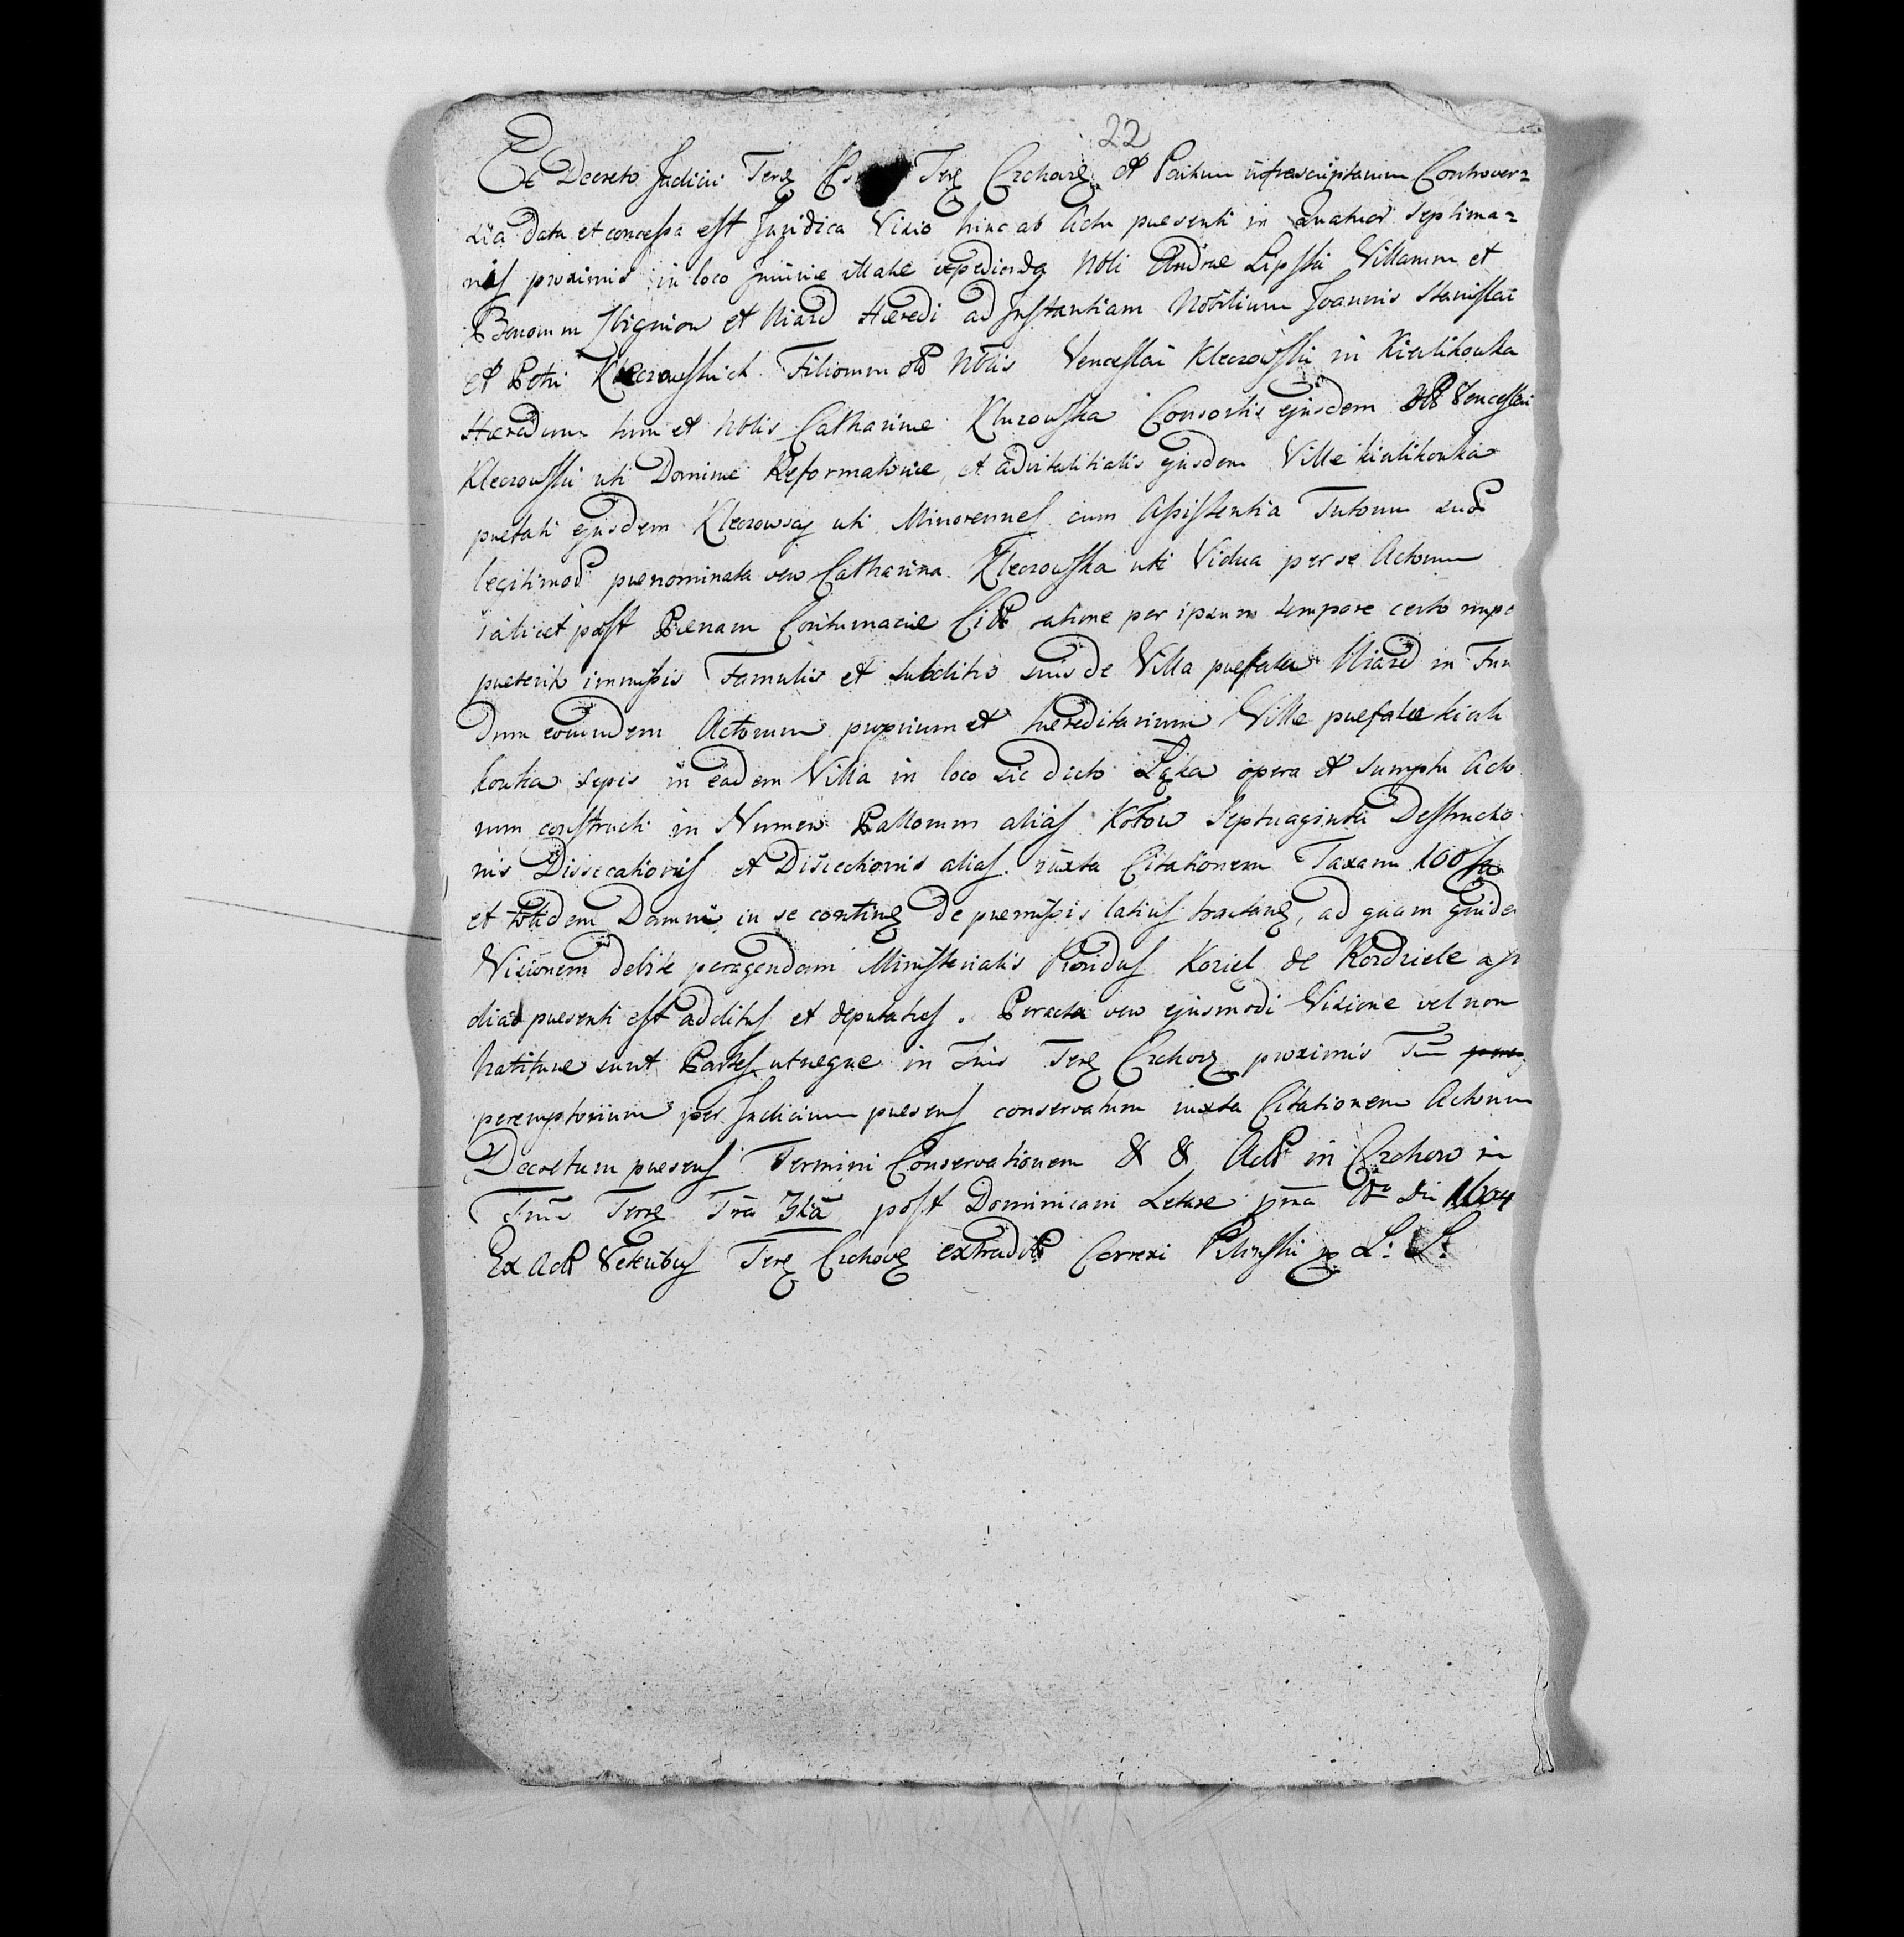 22
Ex Decreto Judicii Terę Terę Czchovię et Partium infrascriptarum Controver=
sia data et concessa est Juridica Visio hinc ab Actu praesenti in Quatuor septima=
nis proximis in loco Injuriae illatae expedienda Nbli Andreae Lipski Villarum et
Bonorum et Uiazd Haeredi ad Instantiam Nobilium Joannis Stanislai
et Petri Kleczowskich Filiorum olb Nblis Venceslai Kleczowski in Kierlikowka
Haeredum tum et Nblis Catharinae Kleczowska Consortis ejusdem olb Venceslai
Kleczowski uti Dominae Reformatricae, et advitalitialis ejusdem Villae Kierlikowka
praefati ejusdem Kleczowscy uti Minorennes cum Assistentia Tutorum suor
legitimor praenominata vero Catharina Kleczowska uti Vidua per se Actorum
scilicet post Paenam Contumaciae Cit ratione per ipsum tempore certo nupe
praeterito immissis Famulis et subditis suis de Villa praefata Uiazd in Fun
dum eorundem Actorum proprium et haereditarium Villae praefatae Kierli
kowka sepis in eadem Villa in loco sic dicto Łąka opera et sumptu Acto
rum constructi in Numero Pallorum alias Kołow Septuaginta Destructio
nis Dissecationis et Disiectionis alias iuxta Citationem Taxam 100
et totidem Damni in se continę de praemissis latius tractanę, ad quam quide
Visionem debite peragendam Ministerialis Providus Koziel de Kordziele a Ju
dicio praesenti est additus et deputatus. Peracta vero ejusmodi Visione vel non
habiturae sunt Partes utraeque in Tnis Terę Czchovę proximis Tnū
peremptorium per Judicium praesens conservatum iuxta Citationem Actorum
Decretum praesens Termini Conservationem & & Act in Czchow in
Tnis Terrę Fra 3tia post Dominicam Letare pma Ao Dni 1604
Ex Act Veteribus Terę Czchovę extradit Correxi L: S: